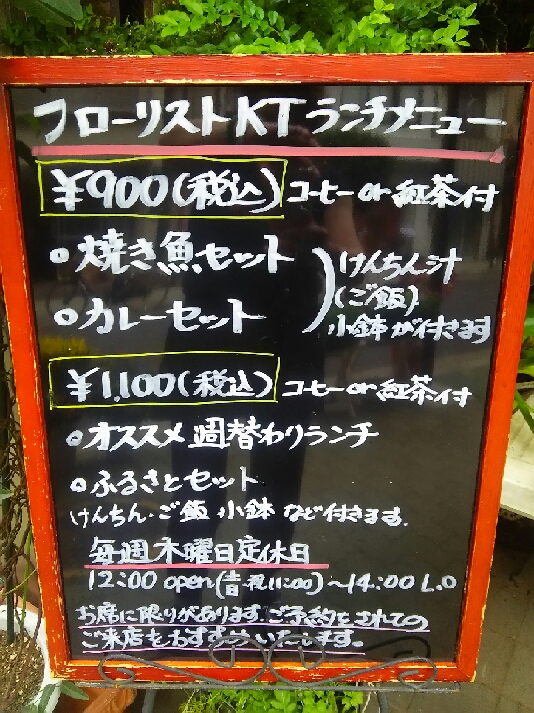 フローリストKTランチメニュー
¥900(税込) コーヒー or 紅茶付
○焼き魚セット
○カレーセット
けんちん汁
(ご飯)
小鉢が付きます
¥1,100(税込) コーヒー or 紅茶付
○オススメ週替わりランチ
○ふるさとセット
けんちん・ご飯 小鉢 など付きます。
毎週木曜日定休日
12:00 open(祝11:00)~14:00 L.O
お席に限りがあります。ご予約をされての
ご来店をおすすめいたします。